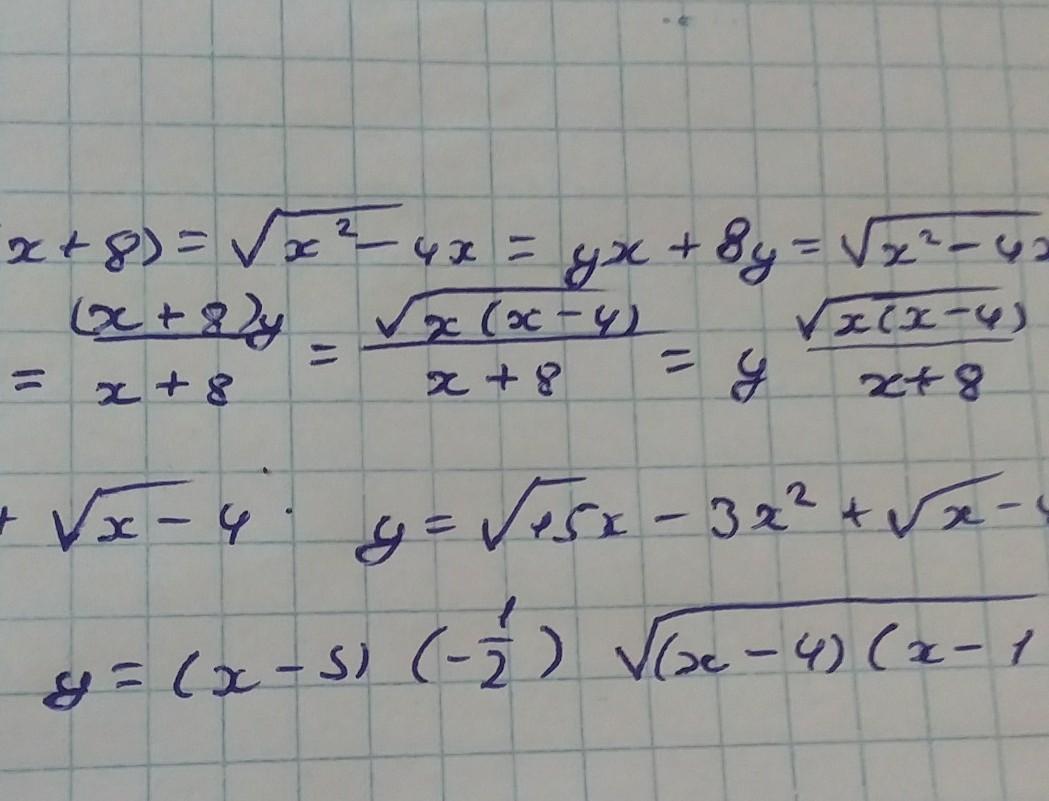 x + 8) = √(x² - 4x = yx + 8y = √(x² - 4x
= (x + 8)y / x + 8 = √(x(x - 4)) / x + 8 = y √(x(x - 4)) / x + 8
+ √x - 4 . y = √15x - 3x² + √x - 4
y = (x - 5) (-1/2) √((x - 4)(x - 1